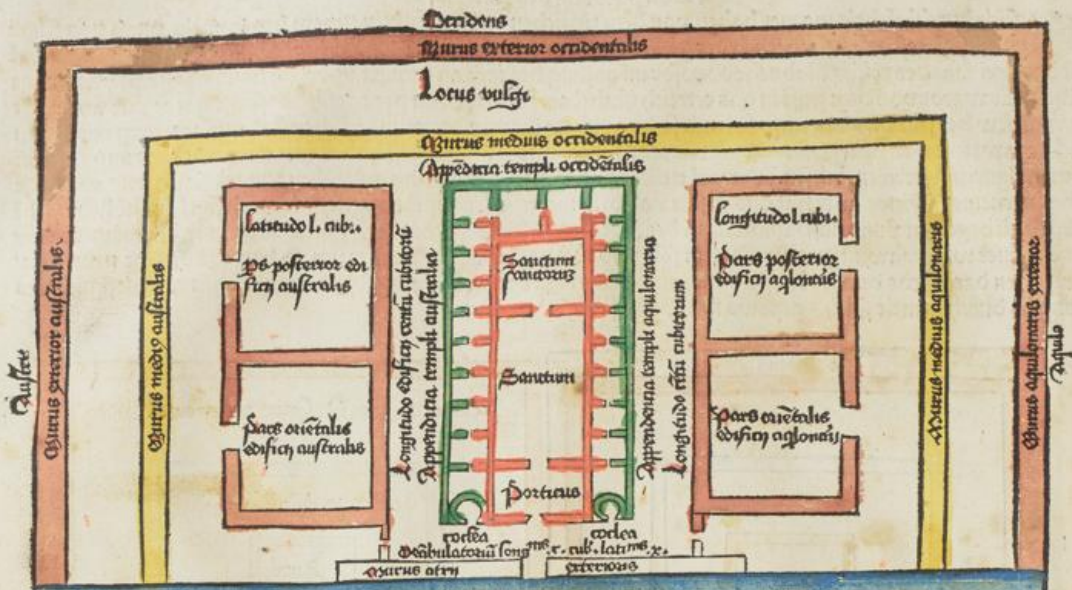 Occidens
Murus exterior occidentalis
Locus vulgi
Murus medius occidentalis
Appēdicia templi occidētalis
Auster
Murus exterior australis.
Murus mediꝰ australis
latitudo l. cubi.
ps posterior edi
ficij australis
Pars oriētalis
edificij australis
Longitudo edificij cētū cubitorū
Appenditia templi australia
Sanctum
sanctorum
Sanctum
Porticus
Appendentia templi aquilonaria
Longitudo cētū cubitorum
longitudo l. cubi.
Pars posterior
edificij aqlonaris
Pars oriētalis
edificij aqlonaris
Murus medius aquilonaris
Murus aquilonaris exterior
Aquilo
coclea
coclea
.x. cub. lati
Murus atrij
exterioris